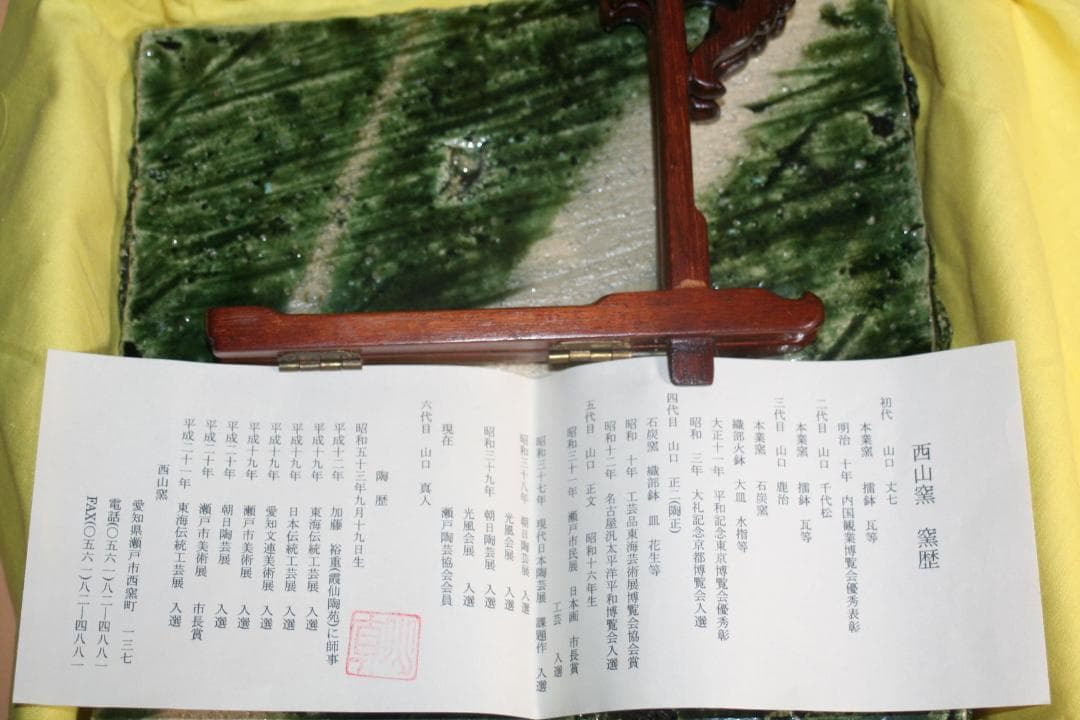 西山窯 窯歴
初代 山口 丈七
本業窯 擂鉢 瓦等
明治 十年 内国観業博覧会優秀表彰
二代目 山口 千代松
本業窯 擂鉢 瓦等
三代目 山口 鹿治
本業窯 石炭窯
織部火鉢 大皿 水指等
大正十一年 平和記念東京博覧会優秀彰
昭和 三年 大礼記念京都博覧会入選
四代目 山口 正二(陶正)
石炭窯 織部鉢 皿 花生等
昭和 十年 工芸品東海芸術展博覧会協会賞
昭和十二年 名古屋汎太平洋平和博覧会入選
五代目 山口 正文 昭和十六年生
昭和三十一年 瀬戸市民展 日本画 市長賞
工芸 入選
昭和三十七年 現代日本陶芸展 課題作 入選
昭和三十八年 朝日陶芸展 入選
光風会展 入選
昭和三十九年 朝日陶芸展 入選
光風会展 入選
現在 瀬戸陶芸協会会員
六代目 山口 真人
陶歴
昭和五十三年九月十九日生
平成十二年 加藤 裕重(霞仙陶苑)に師事
平成十九年 東海伝統工芸展 入選
平成十九年 日本伝統工芸展 入選
平成十九年 愛知文連美術展 入選
平成十九年 瀬戸市美術展 入選
平成二十年 朝日陶芸展 入選
平成二十年 瀬戸市美術展 市長賞
平成二十一年 東海伝統工芸展 入選
西山窯
愛知県瀬戸市西窯町 一三七
電話(〇五六一)八二―四八八一
FAX(〇五六一)八二―四八八一